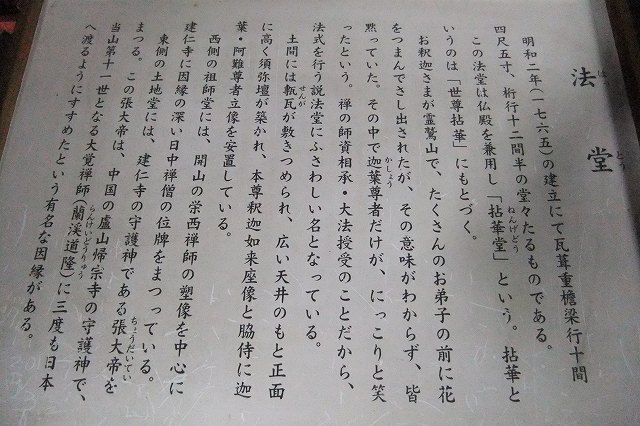 法堂
はっとう
明和二年(一七六五)の建立にて瓦葺重檐梁行十間
四尺五寸、桁行十二間半の堂々たるものである。
この法堂は仏殿を兼用し「拈華堂」という。拈華と
ねんげどう
いうのは「世尊拈華」にもとづく。
お釈迦さまが霊鷲山で、たくさんのお弟子の前に花
をつまんでさし出されたが、その意味がわからず、皆
黙っていた。その中で迦葉尊者だけが、にっこりと笑
かしょう
ったという。禅の師資相承・大法授受のことだから、
法式を行う説法堂にふさわしい名となっている。
土間には甎瓦が敷きつめられ、広い天井のもと正面
せんが
に高く須弥壇が築かれ、本尊釈迦如来座像と脇侍に迦
葉・阿難尊者立像を安置している。
西側の祖師堂には、開山の栄西禅師の塑像を中心に
建仁寺に因縁の深い日中禅僧の位牌をまつっている。
東側の土地堂には、建仁寺の守護神である張大帝を
ちょうだいてい
まつる。この張大帝は、中国の盧山帰宗寺の守護神で、
当山第十一世となる大覚禅師(蘭渓道隆)に三度も日本
らんけいどうりゅう
へ渡るようにすすめたという有名な因縁がある。